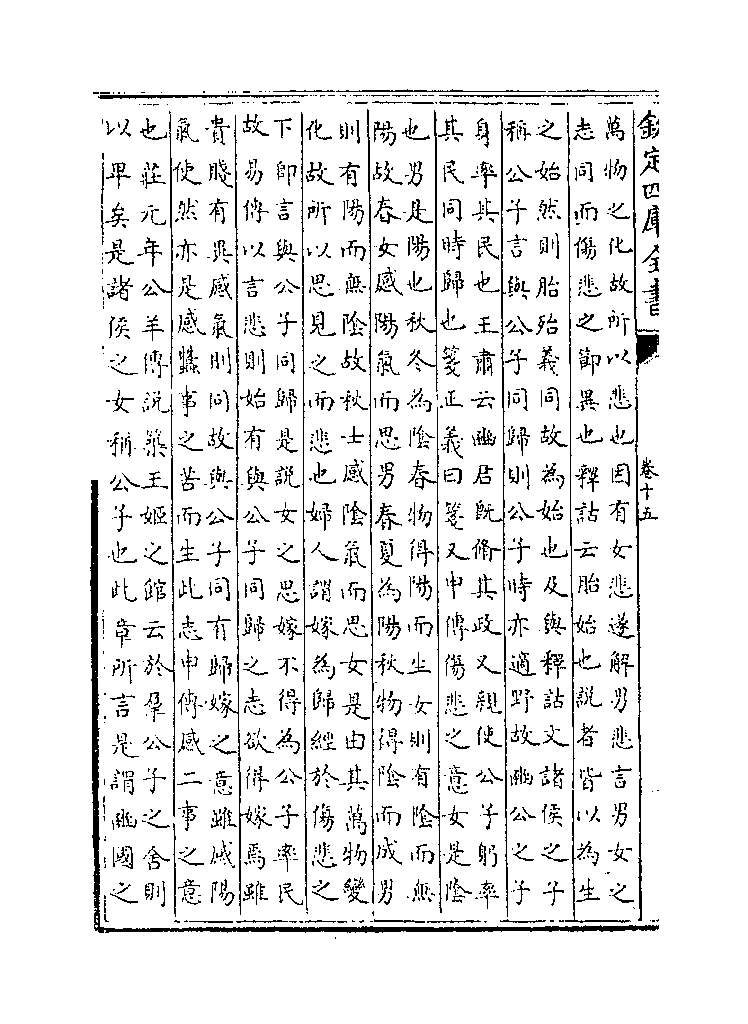 欽定四庫全書
卷十五
萬物之化故所以悲也因有女悲遂解男悲言男女之
志同而傷悲之節異也釋詁云胎始也說者皆以為生
之始然則胎殆義同故為始也及與釋詁文諸侯之子
稱公子言與公子同歸則公子時亦適野故豳公之子
身率其民也王肅云豳君既脩其政又親使公子躬率
其民同時歸也箋正義曰箋又申傳傷悲之意女是陰
也男是陽也秋冬為陰春物得陽而生女則有陰而無
陽故春女感陽氣而思男春夏為陽秋物得陰而成男
則有陽而無陰故秋士感陰氣而思女是由其萬物變
化故所以思見之而悲也婦人謂嫁為歸經於傷悲之
下即言與公子同歸是說女之思嫁不得為公子率民
故易傳以言悲則始有與公子同歸之志欲得嫁焉雖
貴賤有異感氣則同故與公子同有歸嫁之意雖感陽
氣使然亦是感蠶事之苦而生此志申傳感二事之意
也莊元年公羊傳說築王姬之館云於羣公子之舍則
以卑矣是諸侯之女稱公子也此章所言是謂豳國之